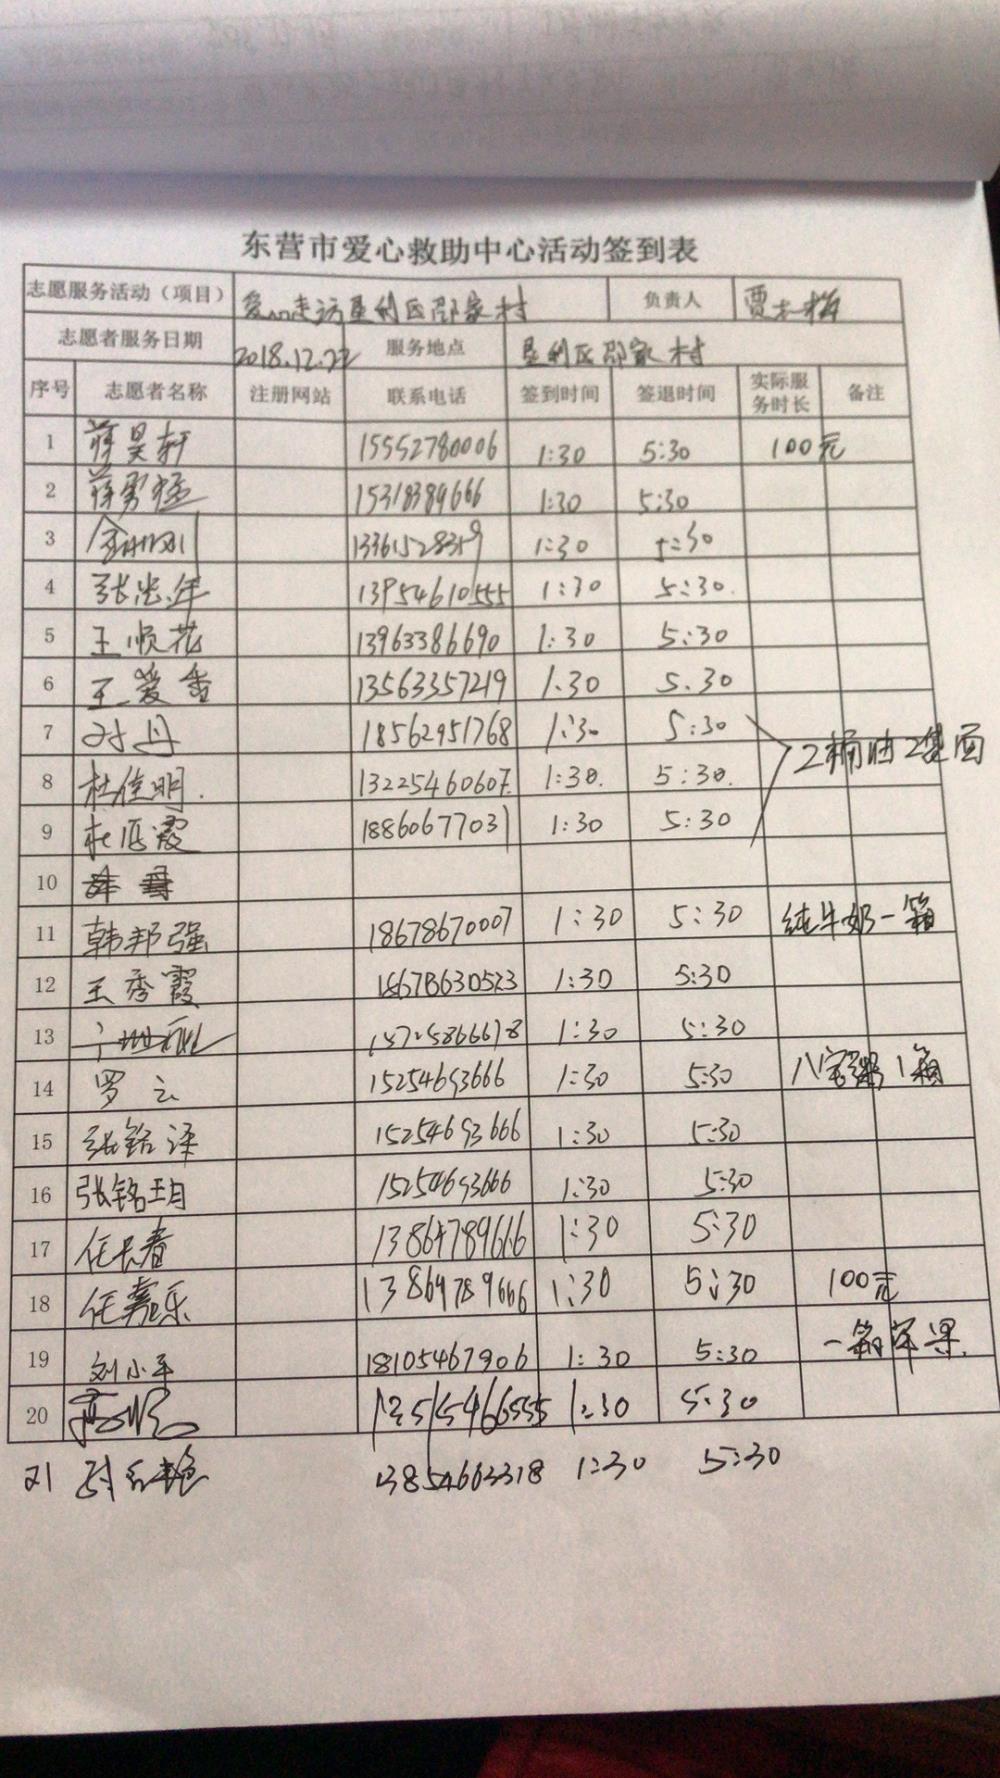 东营市爱心救助中心活动签到表
志愿服务活动（项目） 爱心走访垦利区邵家村 负责人 贾
志愿者服务日期 2018.12.22 服务地点 垦利区邵家村
序号 志愿者名称 注册网站 联系电话 签到时间 签退时间 实际服务时长 备注
1 蒋昊轩 15552780006 1:30 5:30 100元
2 蒋勇猛 15318389666 1:30 5:30
3 1:30 5:30
4 张忠年 13954610555 1:30 5:30.
5 王顺花 13963386690 1:30 5:30
6 王爱香 13563357219 1.30 5.30
7 丹 18562951768 1:30 5:30
2桶油2袋面
8 杜佳明. 13225460607. 1:30. 5:30.
9 杜 霞 18860677031 1:30 5:30
10
11 韩邦强 18678670007 1:30 5:30 纯牛奶一箱
12 王秀霞 18678630523 1:30 5:30
13 1:30 5:30
14 罗云 15254693666 1:30 5:30 八宝粥1箱
15 张铭泽 15254693666 1:30 5:30
16 张铭玥 15254693666 1:30 5:30
17 任长春 13864789666 1:30 5:30
18 任嘉乐 13864789666 1:30 5:30 100元
19 刘小平 18105467906 1:30 5:30 一箱苹果.
20 1:30 5:30
21 13854663318 1:30 5:30